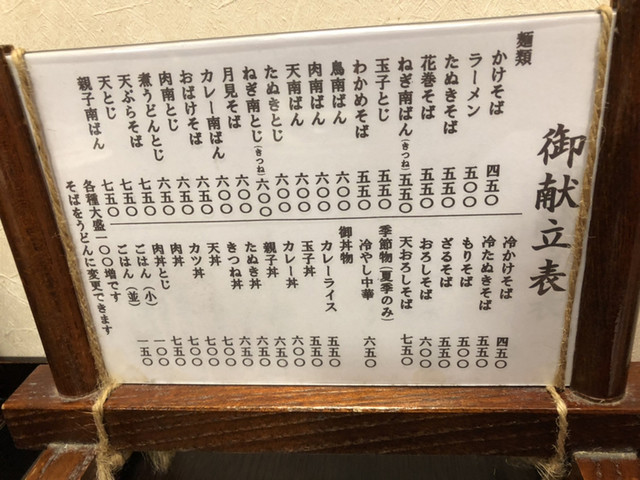 御献立表
麺類
かけそば 四五〇
ラーメン 五〇〇
たぬきそば 五五〇
花巻そば 五五〇
ねぎ南ばん(きつね) 五五〇
玉子とじ 五五〇
わかめそば 五五〇
鳥南ばん 六〇〇
肉南ばん 六〇〇
天南ばん 六〇〇
たぬきとじ 六〇〇
ねぎ南とじ(きつね) 六〇〇
月見そば 六〇〇
カレー南ばん 六〇〇
おばけそば 六五〇
肉南とじ 六五〇
煮うどんとじ 六五〇
天ぷらそば 七五〇
天とじ 七五〇
親子南ばん 七五〇
冷かけそば 四五〇
冷たぬきそば 五五〇
もりそば 五〇〇
ざるそば 五五〇
おろしそば 六〇〇
天おろしそば 七五〇
季節物(夏季のみ)
冷やし中華 六五〇
御丼物
カレーライス 五五〇
玉子丼 五五〇
カレー丼 六〇〇
親子丼 六五〇
たぬき丼 六五〇
きつね丼 六五〇
天丼 七〇〇
カツ丼 七〇〇
肉丼 七〇〇
肉丼とじ 七五〇
ごはん(小) 一〇〇
ごはん(並) 一五〇
各種大盛一〇〇増です
そばをうどんに変更できます